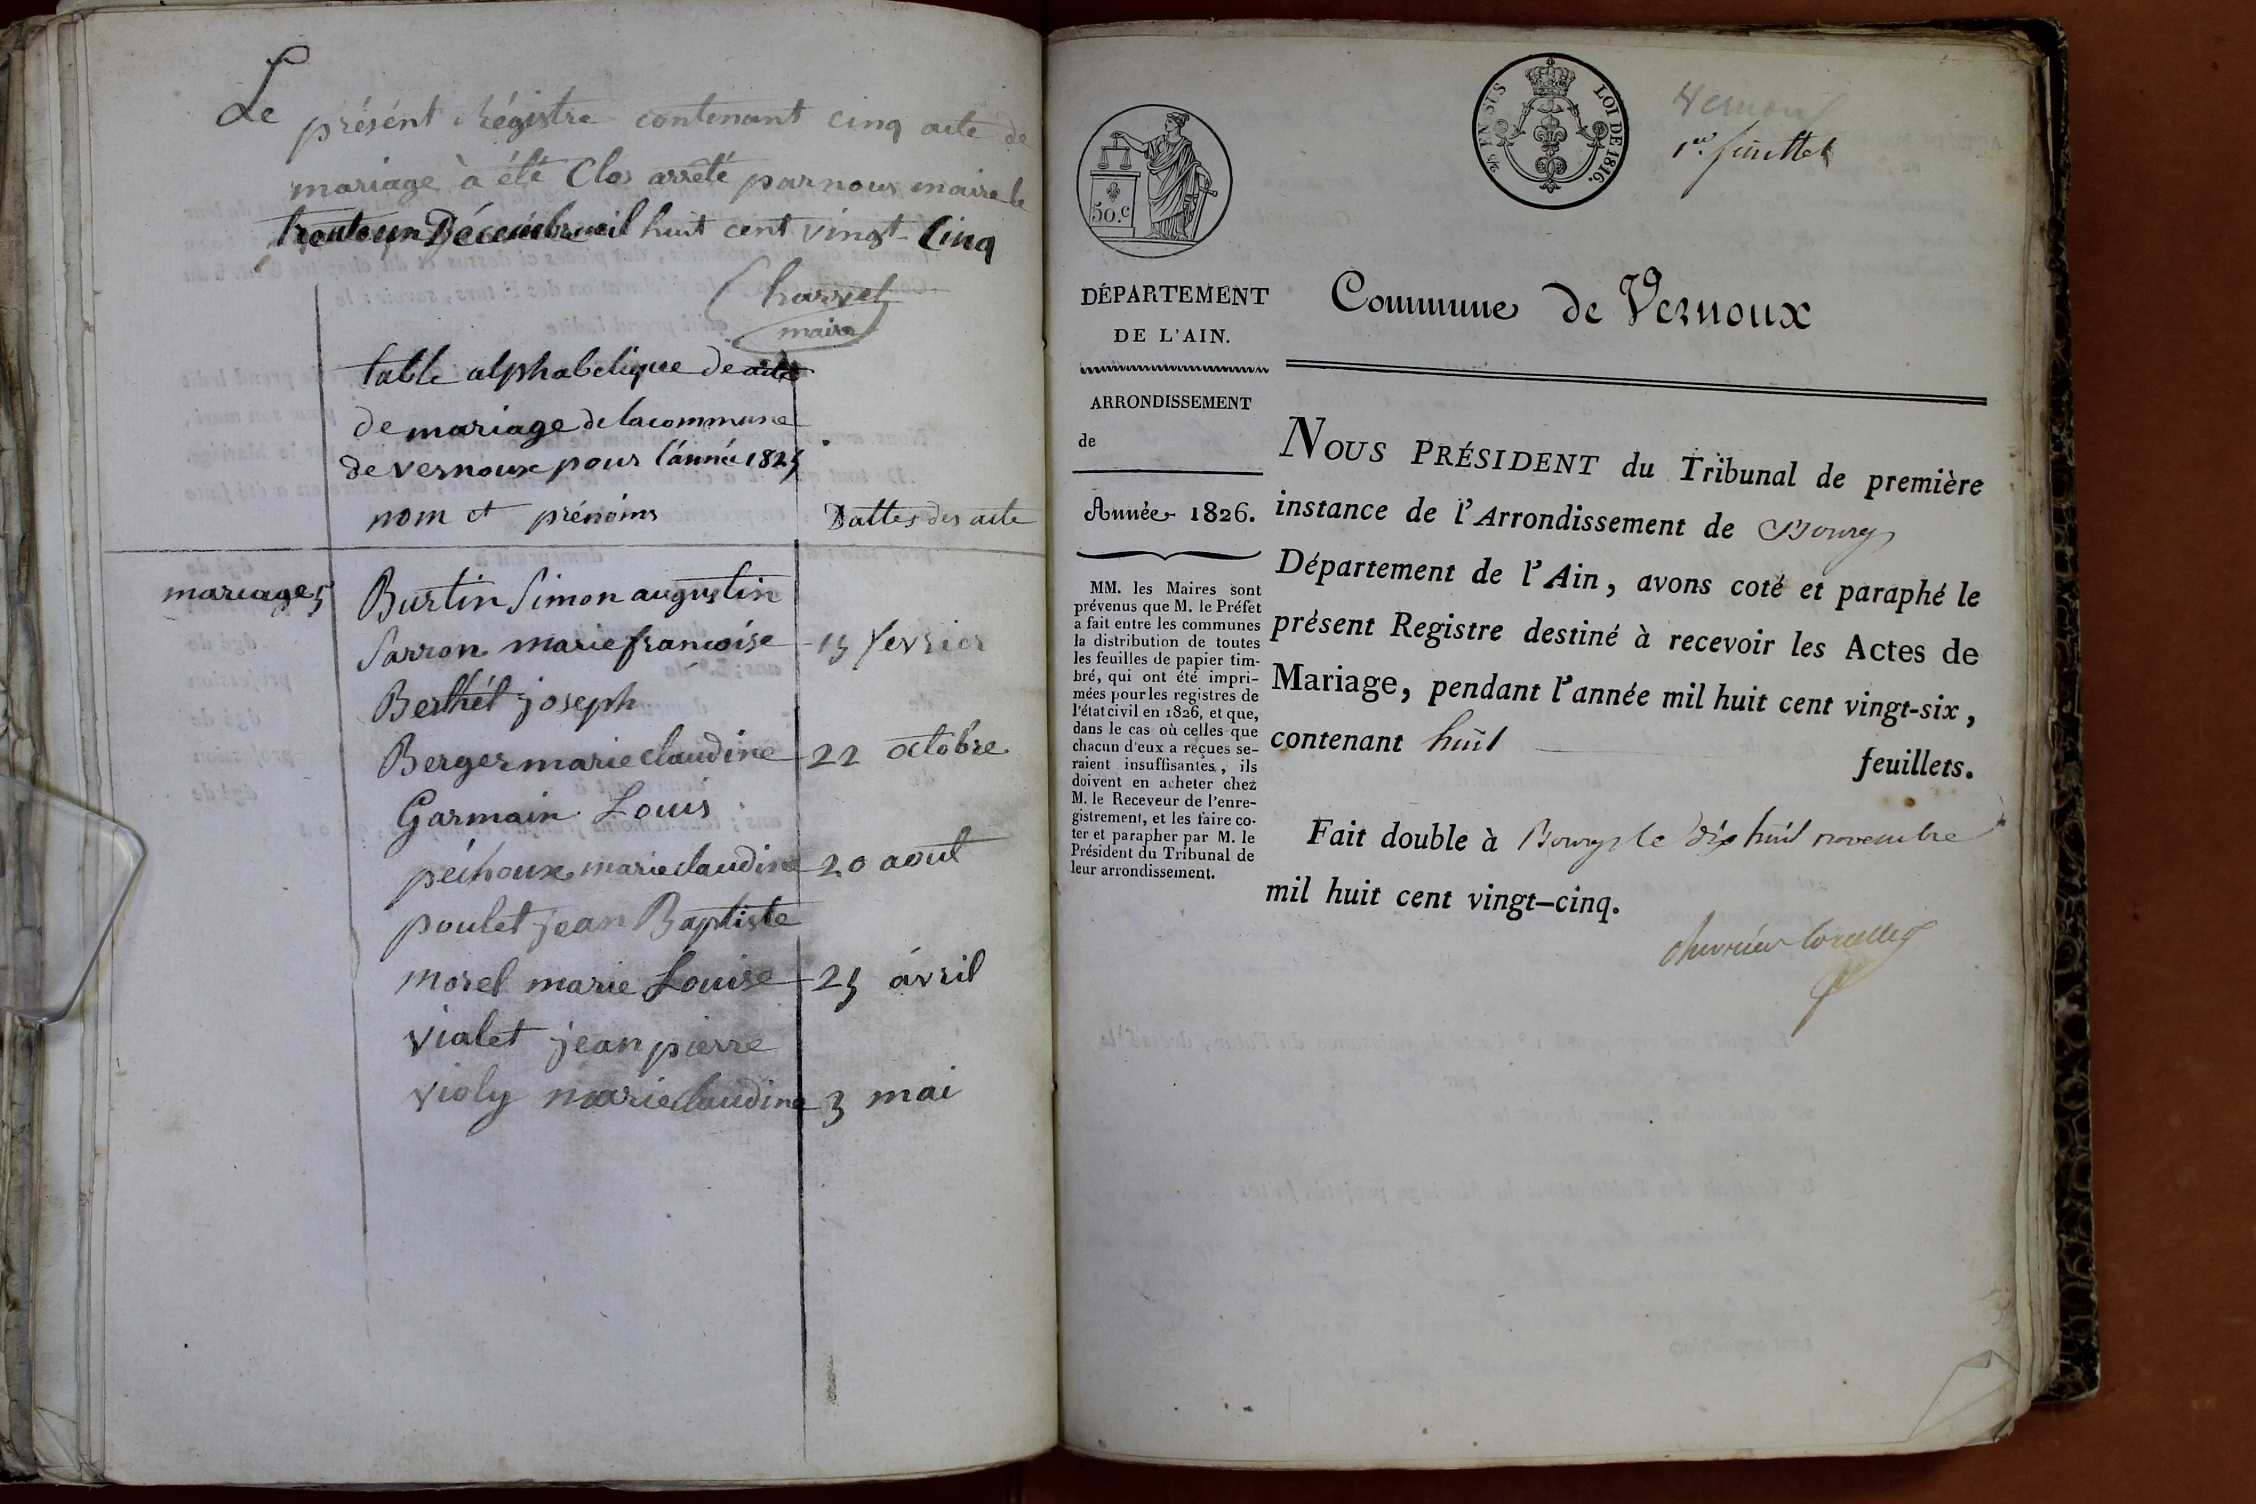 Le
présént régistre contenant cinq acte de
mariage à été Clos arrêté par nous maire le
trente un Décembre mil huit cent vingt-Cinq
maire
table alphabetique de acte
de mariage de la commune
de vernoux pour l'année 1825
nom et prénoms
Dattes des acte
mariages
Burtin Simon augustin
Sarron marie francoise 15 fevrier
Berthét joseph
Berger marie claudine 22 octobre
Garmain Louis
péchoux marie claudine 20 aout
poulet jean Baptiste
morel marie Louise 25 ávril
vialet jean pierre
violy marie claudine 3 mai
50.c
EN SUS
LOI DE 1816.
Vernoux
1er feuillet
DÉPARTEMENT
DE L'AIN.
ARRONDISSEMENT
de
Année 1826.
MM. les Maires sont
prévenus que M. le Préfet
a fait entre les communes
la distribution de toutes
les feuilles de papier tim-
bré, qui ont été impri-
mées pour les registres de
l'état civil en 1826, et que,
dans le cas où celles que
chacun d'eux a reçues se-
raient insuffisantes, ils
doivent en acheter chez
M. le Receveur de l'enre-
gistrement, et les faire co-
ter et parapher par M. le
Président du Tribunal de
leur arrondissement.
Commune de Vernoux
NOUS PRÉSIDENT du Tribunal de première
instance de l'Arrondissement de Bourg
Département de l'Ain, avons coté et paraphé le
présent Registre destiné à recevoir les Actes de
Mariage, pendant l'année mil huit cent vingt-six,
contenant huit feuillets.
Fait double à Bourg le dix huit novembre
mil huit cent vingt-cinq.